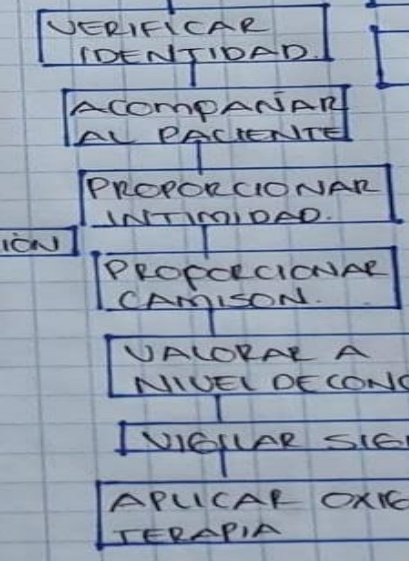 VERIFICAR
IDENTIDAD.
ACOMPAÑAR
AL PACIENTE
PROPORCIONAR
INTIMIDAD.
IÓN
PROPORCIONAR
CAMISON.
VALORAR A
NIVEL DE CONC
VIGILAR SIG
APLICAR OXIG
TERAPIA